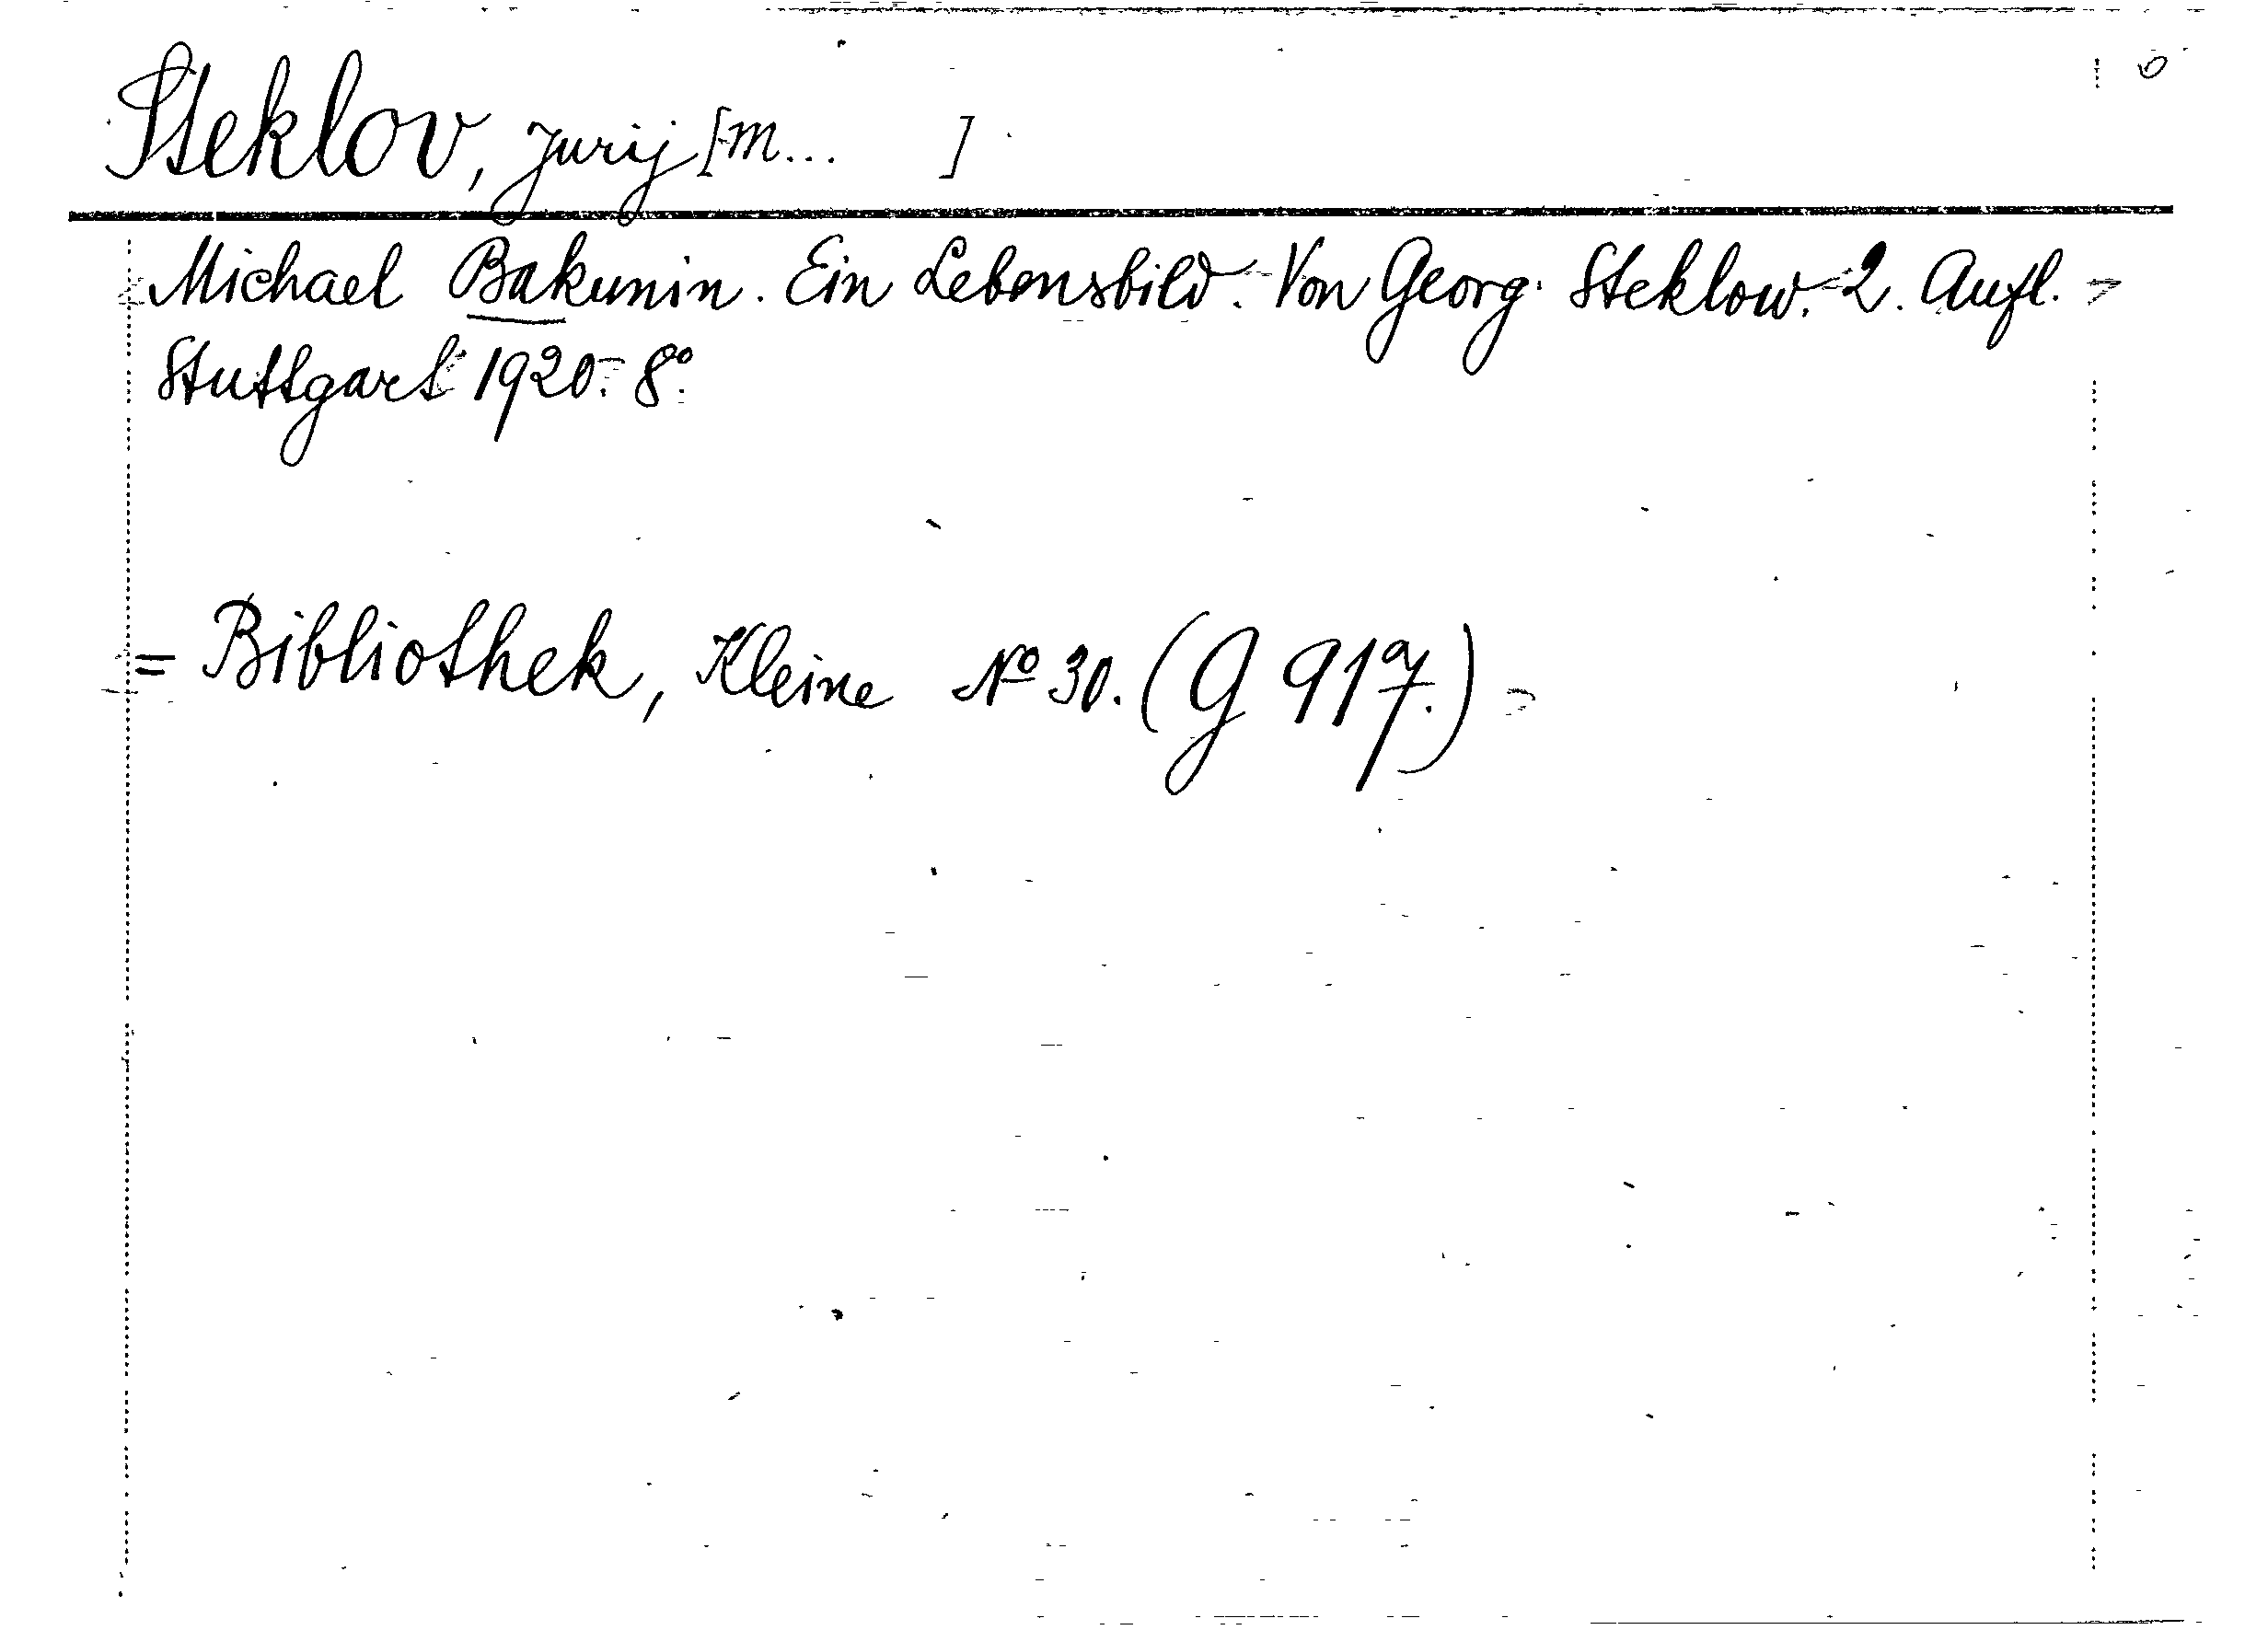 Steklov, Jurij [M... ]
Michael Bakunin. Ein Lebensbild. Von Georg Steklow. 2. Aufl.
Stuttgart 1920. 8°.
= Bibliothek, Kleine № 30. (G 917.)